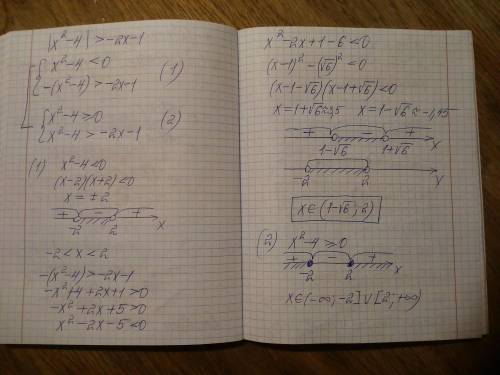 |x²-4| > -2x-1
x²-4 < 0
-(x²-4) > -2x-1 (1)
x²-4 ⩾ 0
x²-4 > -2x-1 (2)
(1) x²-4 < 0
(x-2)(x+2) < 0
x = ±2
+ - +
-2 2 x
-2 < x < 2
-(x²-4) > -2x-1
-x²+4+2x+1 > 0
-x²+2x+5 > 0
x²-2x-5 < 0
x²-2x+1-6 < 0
(x-1)²-(√6)² < 0
(x-1-√6)(x-1+√6) < 0
x=1+√6≈3,5 x=1-√6≈-1,45
+ - +
1-√6 1+√6 x
-2 2 y
x∈(1-√6; 2)
(2) x²-4 ⩾ 0
+ - +
-2 2 x
x∈(-∞;-2]∪[2;+∞)